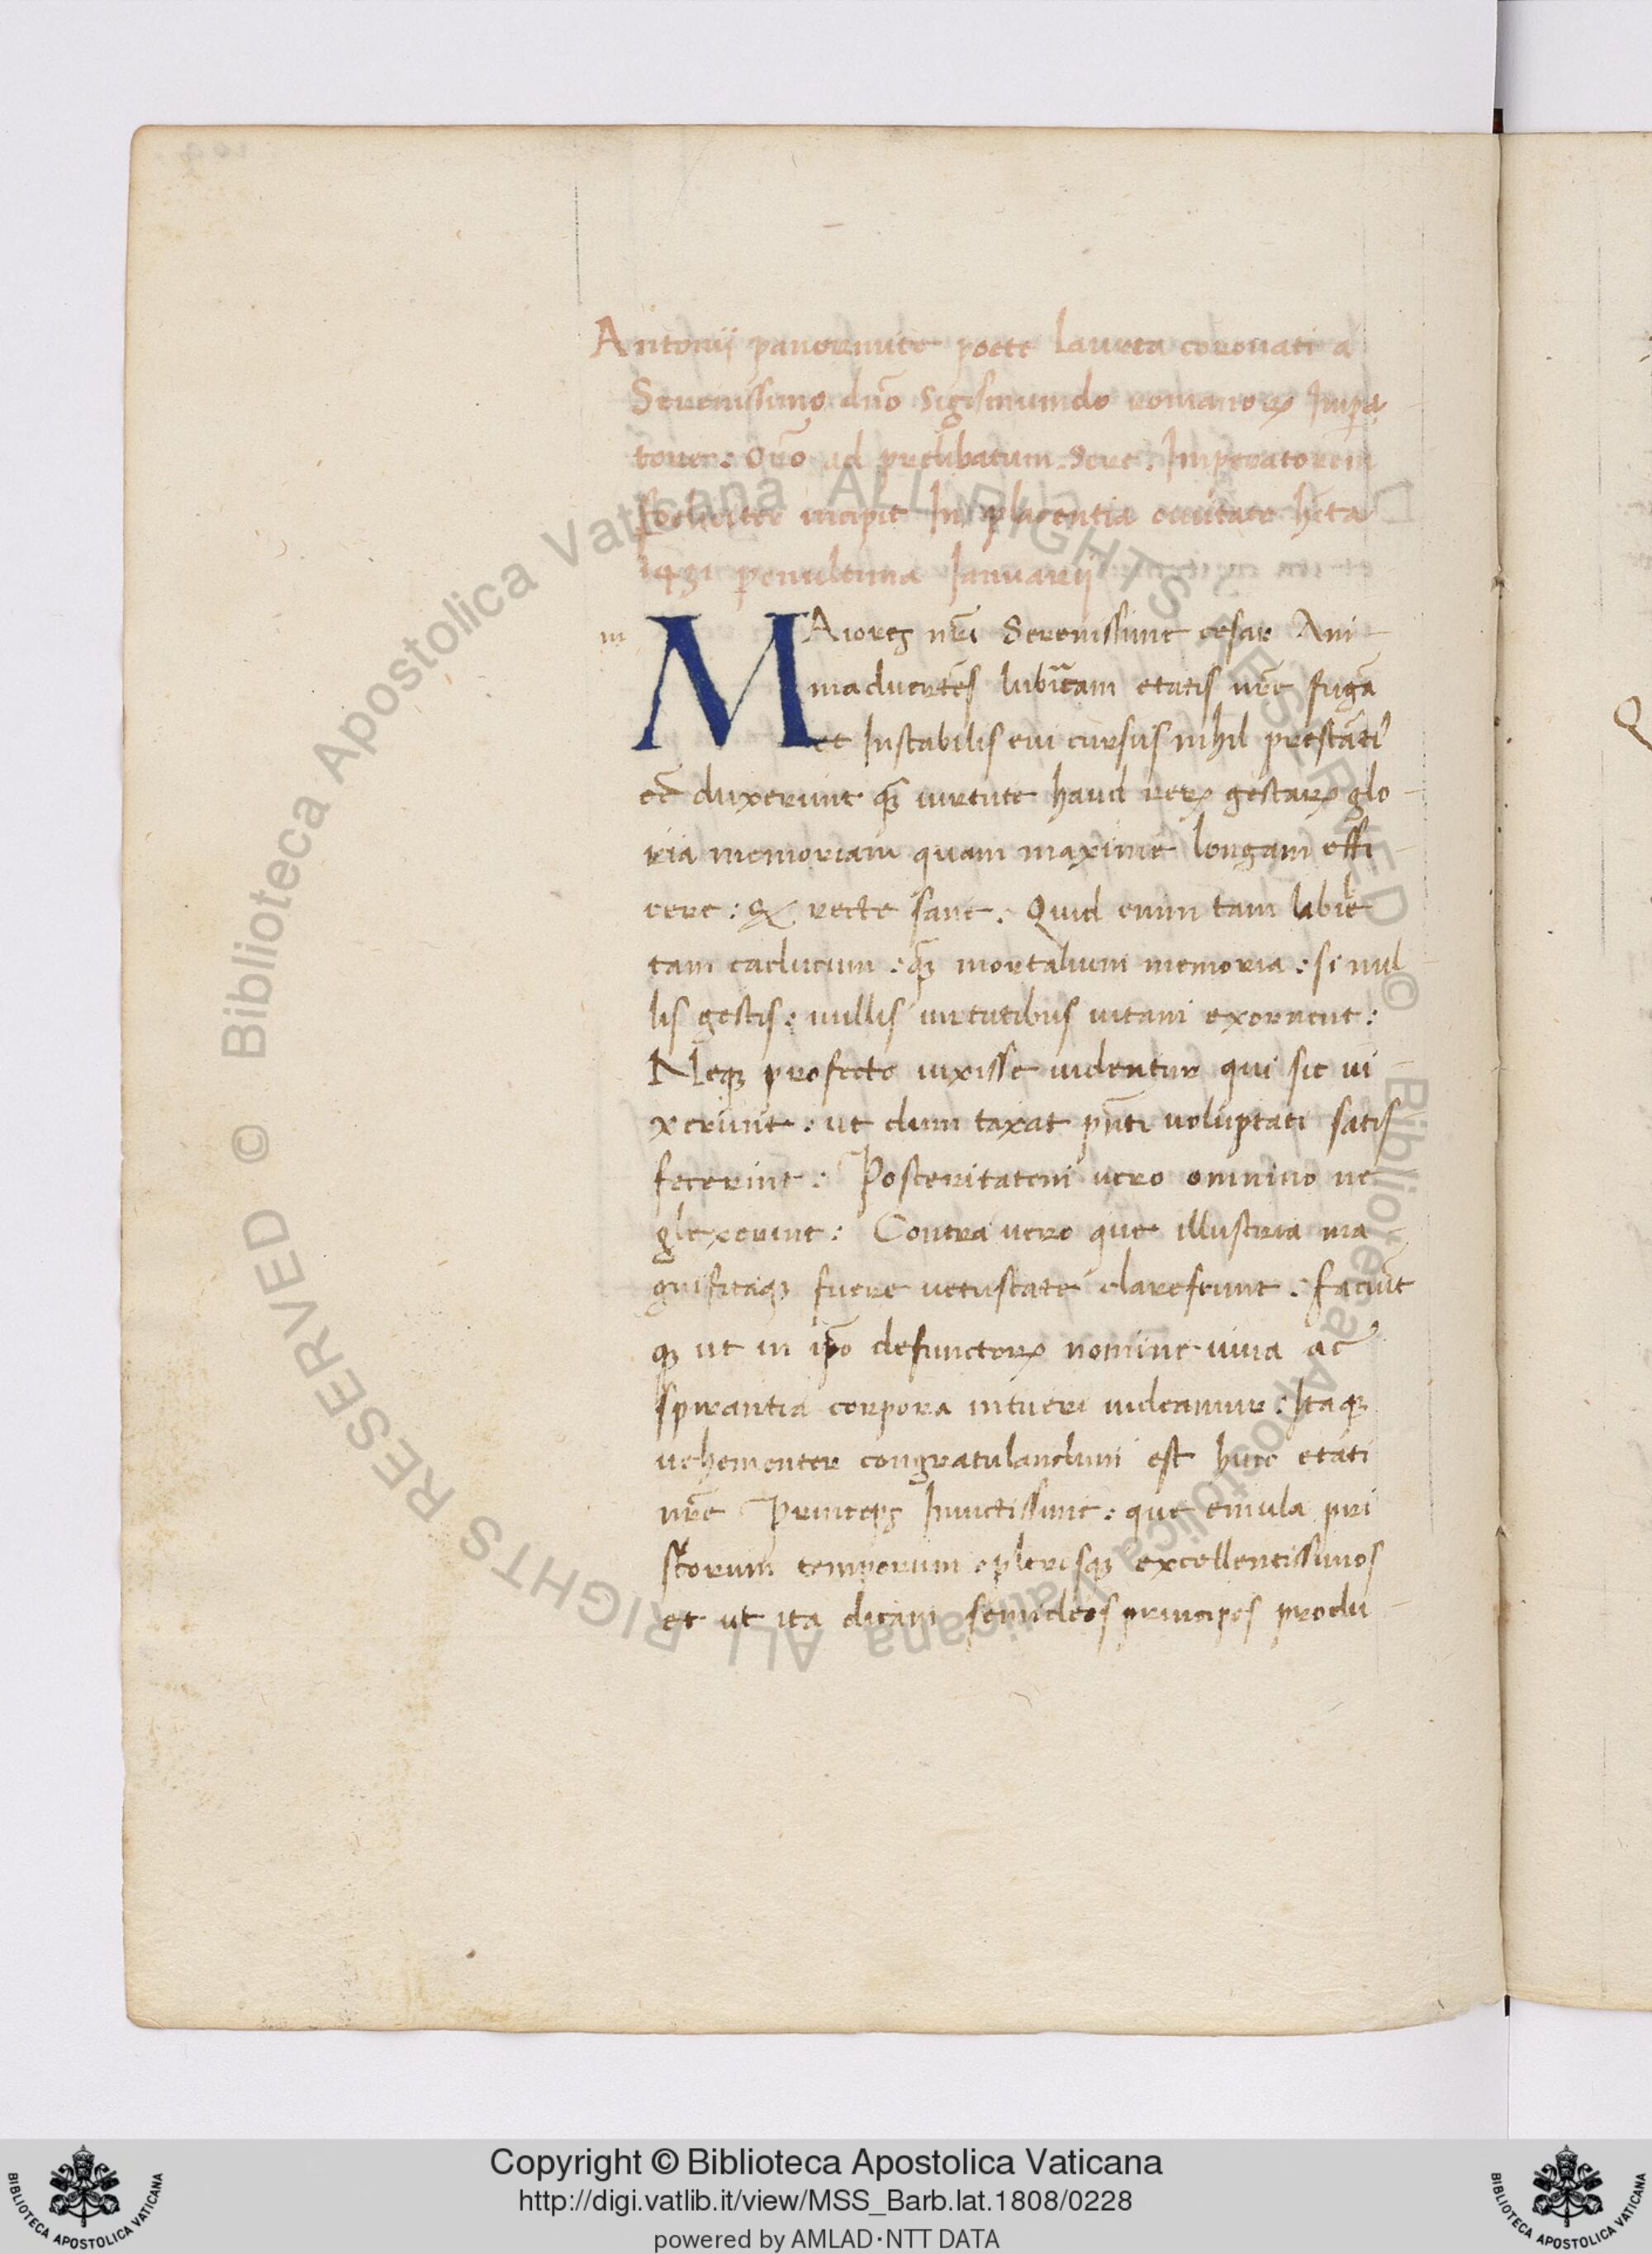 Antonij panormite poete laurea coronati a
Serenissimo dn̄o Sigismundo romanorꝝ Impa
tore: Orō ad prelibatum. Sere. Imperatorem
foeliciter incipit In placentia ciuitate hīta
1431 penultima Januarij
m
MAiores nr̄i Serenissime cesar Ani
maduertēs lubricam etatis nr̄e fugā
et Instabilis eui cursus nihil prestāti
duxerunt qꝫ uirtute haud rerꝝ gestarꝝ glo
ria memoriam quam maxime longam effi
cere: & recte sane. Quid enim tam labile
tam caducum: qꝫ mortalium memoria: si nul
lis gestis: nullis uirtutibus uitam exornent:
Neqꝫ profecto uixisse uidentur qui sic ui
xerunt: ut dum taxat pn̄ti uoluptati satis
fecerint: Posteritatem uero omnino ne
glexerint: Contra uero que illustria ma
gnificaqꝫ fuere uetustate clarescunt. faciūt
qꝫ ut in ip̄o defunctorꝝ nomine uiua ac
spirantia corpora intueri uideamur: Itaqꝫ
uehementer congratulandum est huic etati
nr̄e Princeps Inuictissime: que emula pri
scorum temporum plerosqꝫ excellentissimos
et ut ita dicam semideos principes produ
© Biblioteca Apostolica Vaticana ALL RIGHTS RESERVED © Biblioteca Apostolica Vaticana ALL RIGHTS RESERVED
Copyright © Biblioteca Apostolica Vaticana
http://digi.vatlib.it/view/MSS_Barb.lat.1808/0228
powered by AMLAD·NTT DATA
BIBLIOTECA APOSTOLICA VATICANA
BIBLIOTECA APOSTOLICA VATICANA